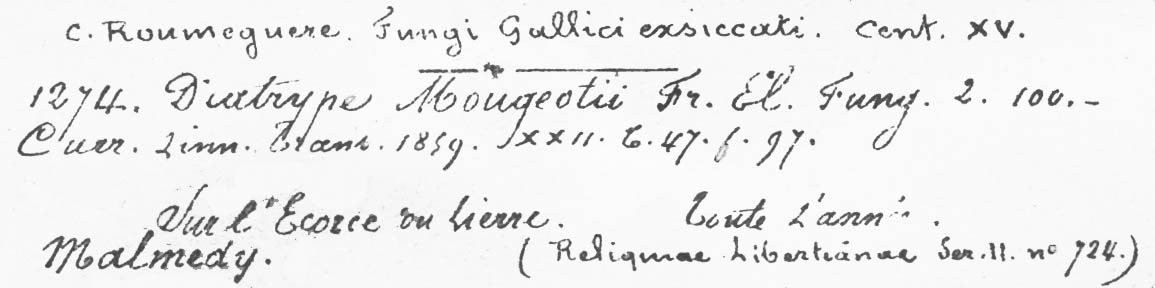 C. Roumeguere. Fungi Gallici exsiccati. Cent. XV.
1274. Diatrype Mougeotii Fr. El. Fung. 2. 100.-
Curr. Linn. Trans. 1859. XXII. t. 47. f. 97.
Sur l'Ecorce du Lierre. Toute L'ann
Malmedy. (Reliquiae Libertianae Ser. II. no 724.)